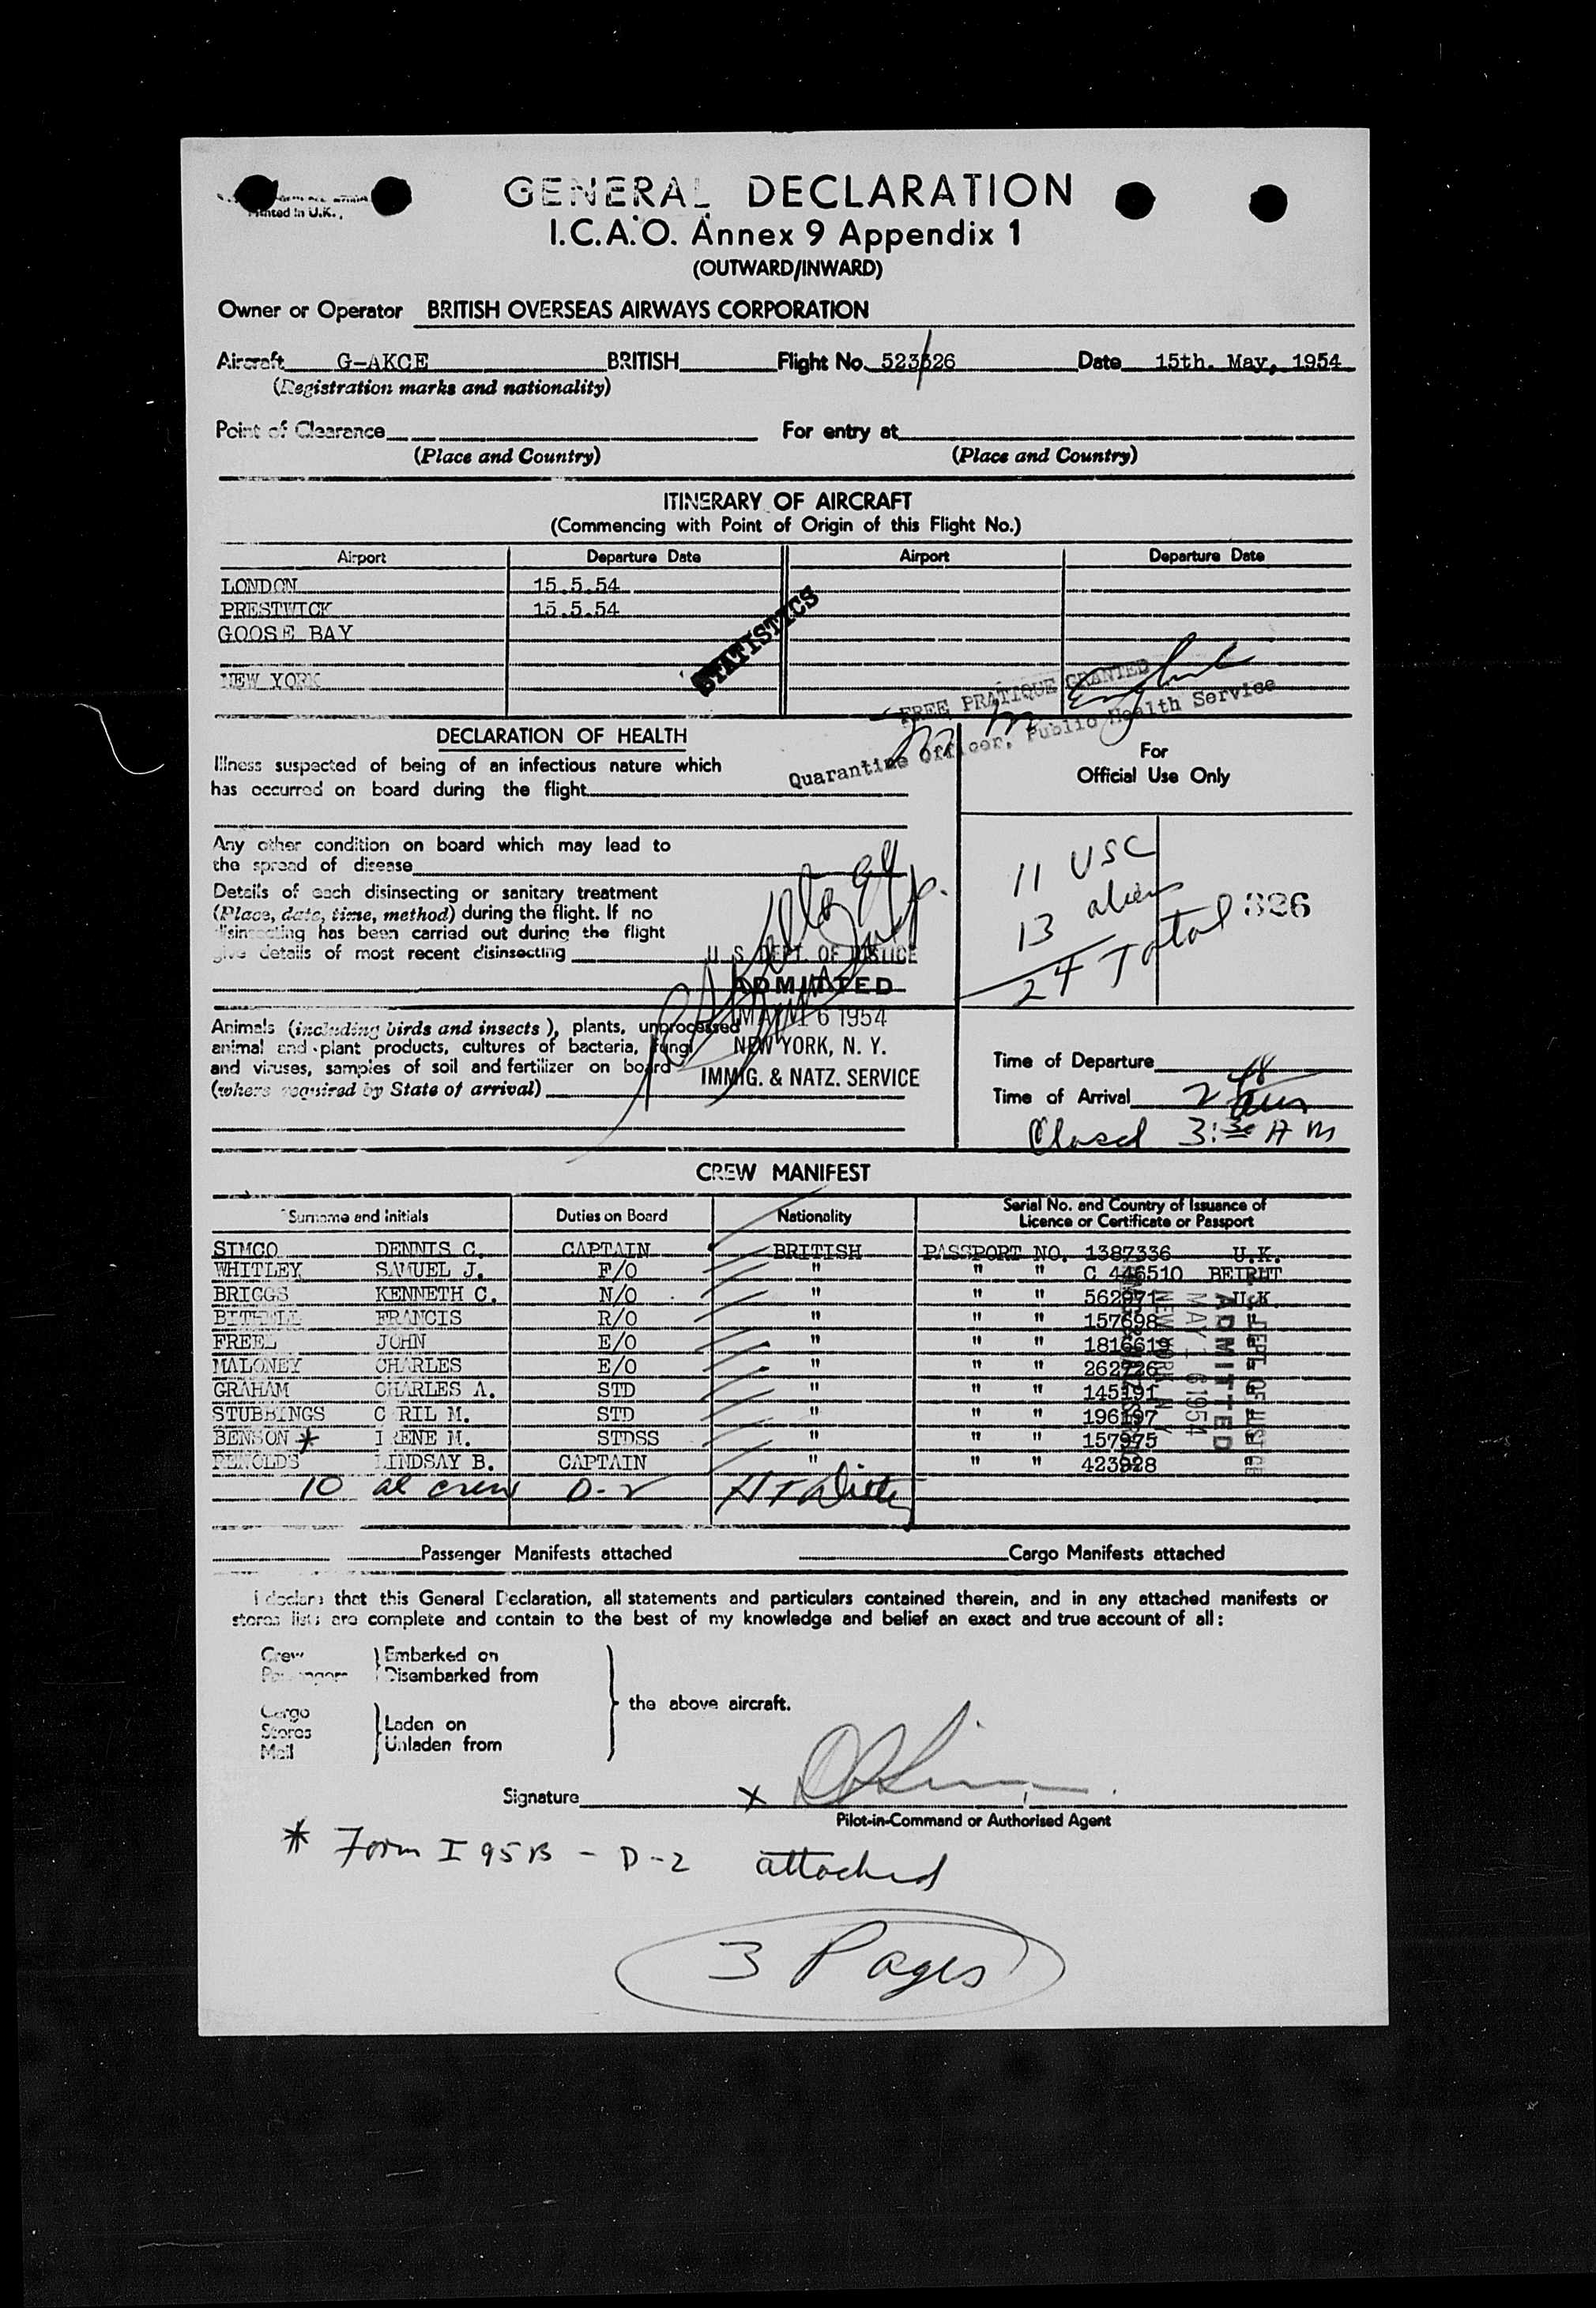 Printed in U.K.
GENERAL DECLARATION
I.C.A.O. Annex 9 Appendix 1
(OUTWARD/INWARD)
Owner or Operator BRITISH OVERSEAS AIRWAYS CORPORATION
Aircraft G-AKCE BRITISH Flight No. 523/626 Date 15th. May, 1954
(Registration marks and nationality)
Point of Clearance For entry at
(Place and Country) (Place and Country)
ITINERARY OF AIRCRAFT
(Commencing with Point of Origin of this Flight No.)
Airport Departure Date Airport Departure Date
LONDON 15.5.54
PRESTWICK 15.5.54
GOOSE BAY
NEW YORK
STATISTICS
FREE PRATIQUE GRANTED
Quarantine Officer, Public Health Service
DECLARATION OF HEALTH
Illness suspected of being of an infectious nature which
has occurred on board during the flight
For
Official Use Only
Any other condition on board which may lead to
the spread of disease
Details of each disinsecting or sanitary treatment
(Place, date, time, method) during the flight. If no
disinsecting has been carried out during the flight
give details of most recent disinsecting
11 USC
13 aliens
24 Total
326
U. S. DEPT. OF JUSTICE
ADMITTED
MAY 16 1954
NEW YORK, N. Y.
IMMIG. & NATZ. SERVICE
Animals (including birds and insects), plants, unprocessed
animal and plant products, cultures of bacteria, fungi
and viruses, samples of soil and fertilizer on board
(where required by State of arrival)
Time of Departure
Time of Arrival 2 48 am
Closed 3:30 AM
CREW MANIFEST
Surname and initials Duties on Board Nationality Serial No. and Country of Issuance of
Licence or Certificate or Passport
SIMCO DENNIS C. CAPTAIN BRITISH PASSPORT NO. 1387336 U.K.
WHITLEY SAMUEL J. F/O " " " C 446510 BEIRUT
BRIGGS KENNETH C. N/O " " " 562971 U.K.
BITHELL FRANCIS R/O " " " 157698 "
FREEL JOHN E/O " " " 1816619 "
MALONEY CHARLES E/O " " " 262726 "
GRAHAM CHARLES A. STD " " " 145191 "
STUBBINGS CYRIL M. STD " " " 196197 "
BENSON * IRENE M. STDSS " " " 157975 "
RENOLDS LINDSAY B. CAPTAIN " " " 423928 "
10 al crew D-2
U.S. DEPT. OF JUSTICE
ADMITTED
MAY 16 1954
NEW YORK, N.Y.
Passenger Manifests attached Cargo Manifests attached
I declare that this General Declaration, all statements and particulars contained therein, and in any attached manifests or
stores lists are complete and contain to the best of my knowledge and belief an exact and true account of all:
Crew Embarked on
Passengers Disembarked from
the above aircraft.
Cargo
Stores Laden on
Mail Unladen from
Signature X
Pilot-in-Command or Authorised Agent
* Form I 95B - D-2 attached
3 Pages